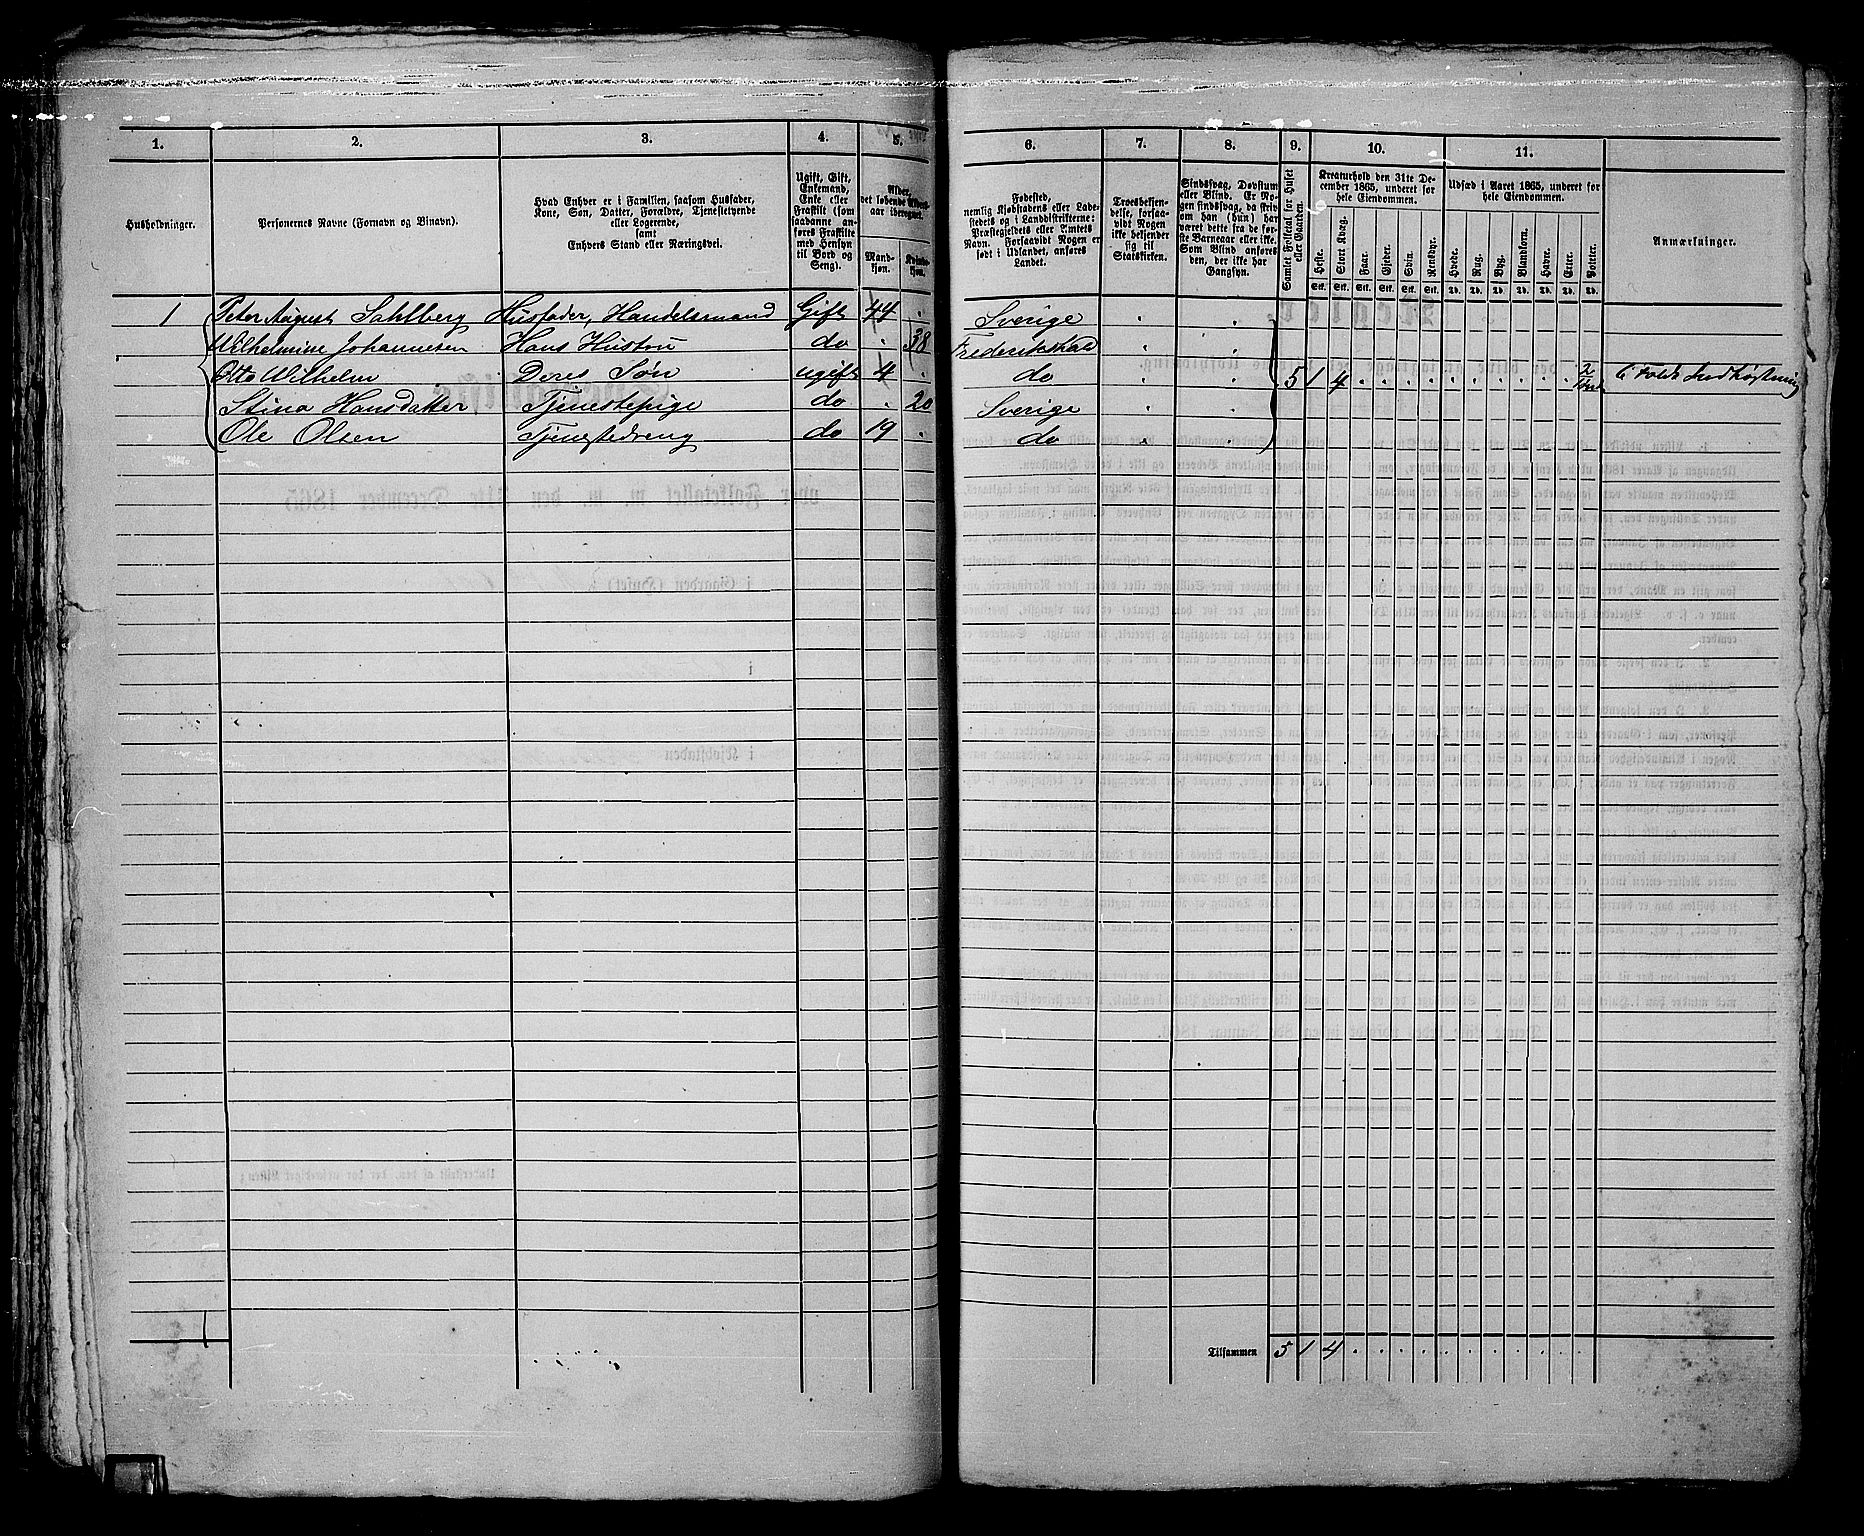 1. 2. 3. 4. 5. 6. 7. 8. 9. 10. 11.
Husholdninger.
Personernes Navne (Fornavn og Binavn).
Hvad Enhver er i Familien, saasom Husfader,
Kone, Søn, Datter, Forældre, Tjenestetyende
eller Logerende,
samt
Enhvers Stand eller Næringsvei.
Ugift, Gift,
Enkemand,
Enke eller
Fraskilt (som
saadanne an-
føres Fraskilte
med Hensyn
til Bord og
Seng).
Alder,
det løbende Alders-
aar iberegnet.
Mand-
kjøn.
Kvinde-
kjøn.
Fødested,
nemlig Kjøbstadens eller Lade-
stedets og i Landdistrikterne:
Præstegjeldets eller Amtets
Navn. Forsaavidt Nogen er
født i Udlandet, anføres
Landet.
Troesbekjen-
delse, forsaa-
vidt Nogen
ikke bekjender
sig til
Statskirken.
Sindssvag, Døvstum
eller Blind. Er No-
gen sindssvag, da skriv
om han (hun) har
været dette fra de før-
ste Barneaar eller ikke.
Som Blind anføres
den, der ikke har
Gangsyn.
Samlet Folketal for Huset
eller Gaarden.
Kreaturhold den 31te De-
cember 1865, underet for
hele Eiendommen.
Heste. Stort Kvæg. Faar. Gjeder. Svin. Rensdyr.
Stk. Stk. Stk. Stk. Stk. Stk.
Udsæd i Aaret 1865, underet for
hele Eiendommen.
Hvede. Rug. Byg. Blandkorn. Havre. Erter. Poteter.
Td. Td. Td. Td. Td. Td. Td.
Anmærkninger.
1 Peter August Sahlberg Husfader, Handelsmand Gift 44 . Sverige . .
Wilhelmine Johannesen Hans Hustru do . 38 Frederikshald . .
Otto Wilhelm Deres Søn ugift 4 . do . . 5 1 4 . . . . . . . . . . 2 6 Folds Indhøstning
Stina Hansdatter Tjenestepige do . 20 Sverige . .
Ole Olsen Tjenestedreng do 19 . do . .
1
Tilsammen 5 1 4 . . . . . . . . . .